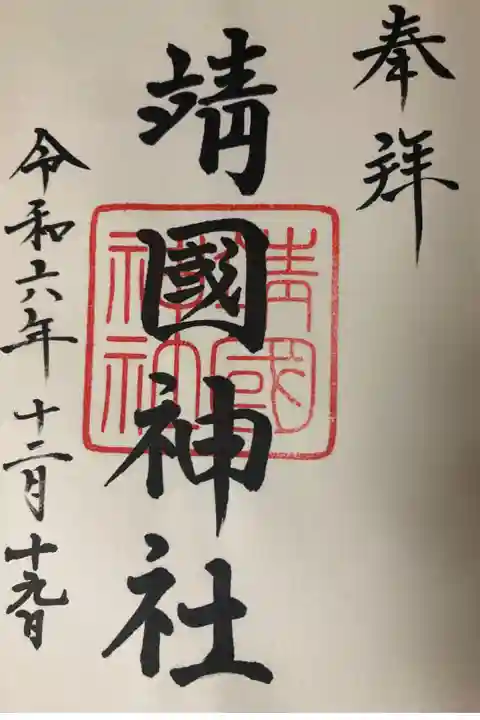 奉拜
靖國神社
靖國神社
令和六年十二月十九日